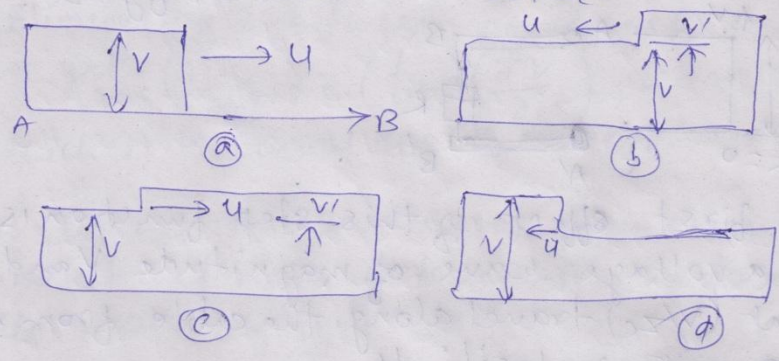 V
u
A
B
(a)
u
V'
V
(b)
u
V'
V
(c)
V
u
(d)